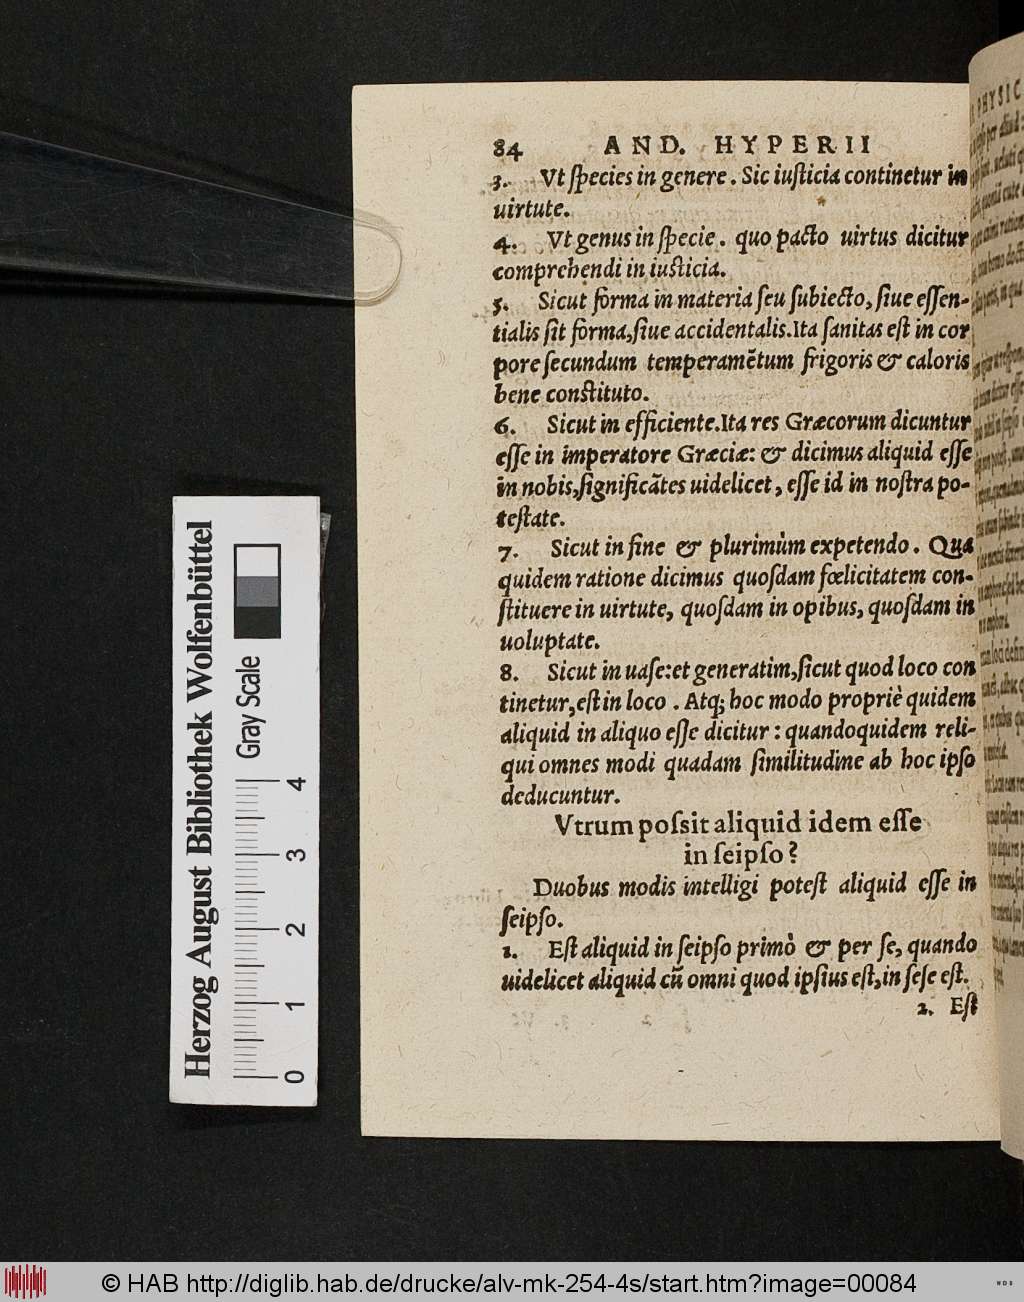 84 AND. HYPERII
3. Vt ſpecies in genere. Sic iuſticia continetur in
uirtute.
4. Vt genus in ſpecie. quo pacto uirtus dicitur
comprehendi in iuſticia.
5. Sicut forma in materia ſeu ſubiecto, ſiue eſſen-
tialis ſit forma, ſiue accidentalis. Ita ſanitas eſt in cor
pore ſecundum temperamẽtum frigoris & caloris
bene conſtituto.
6. Sicut in efficiente. Ita res Græcorum dicuntur
eſſe in imperatore Græciæ: & dicimus aliquid eſſe
in nobis, ſignificãtes uidelicet, eſſe id in noſtra po-
teſtate.
7. Sicut in fine & plurimùm expetendo. Qua
quidem ratione dicimus quoſdam fœlicitatem con-
ſtituere in uirtute, quoſdam in opibus, quoſdam in
uoluptate.
8. Sicut in uaſe: et generatim, ſicut quod loco con
tinetur, eſt in loco. Atq; hoc modo propriè quidem
aliquid in aliquo eſſe dicitur: quandoquidem reli-
qui omnes modi quadam ſimilitudine ab hoc ipſo
deducuntur.
Vtrum poſsit aliquid idem eſſe
in ſeipſo?
Duobus modis intelligi poteſt aliquid eſſe in
ſeipſo.
1. Eſt aliquid in ſeipſo primò & per ſe, quando
uidelicet aliquid cũ omni quod ipſius eſt, in ſeſe eſt.
2. Eſt
Herzog August Bibliothek Wolfenbüttel
Gray Scale
0 1 2 3 4
© HAB http://diglib.hab.de/drucke/alv-mk-254-4s/start.htm?image=00084